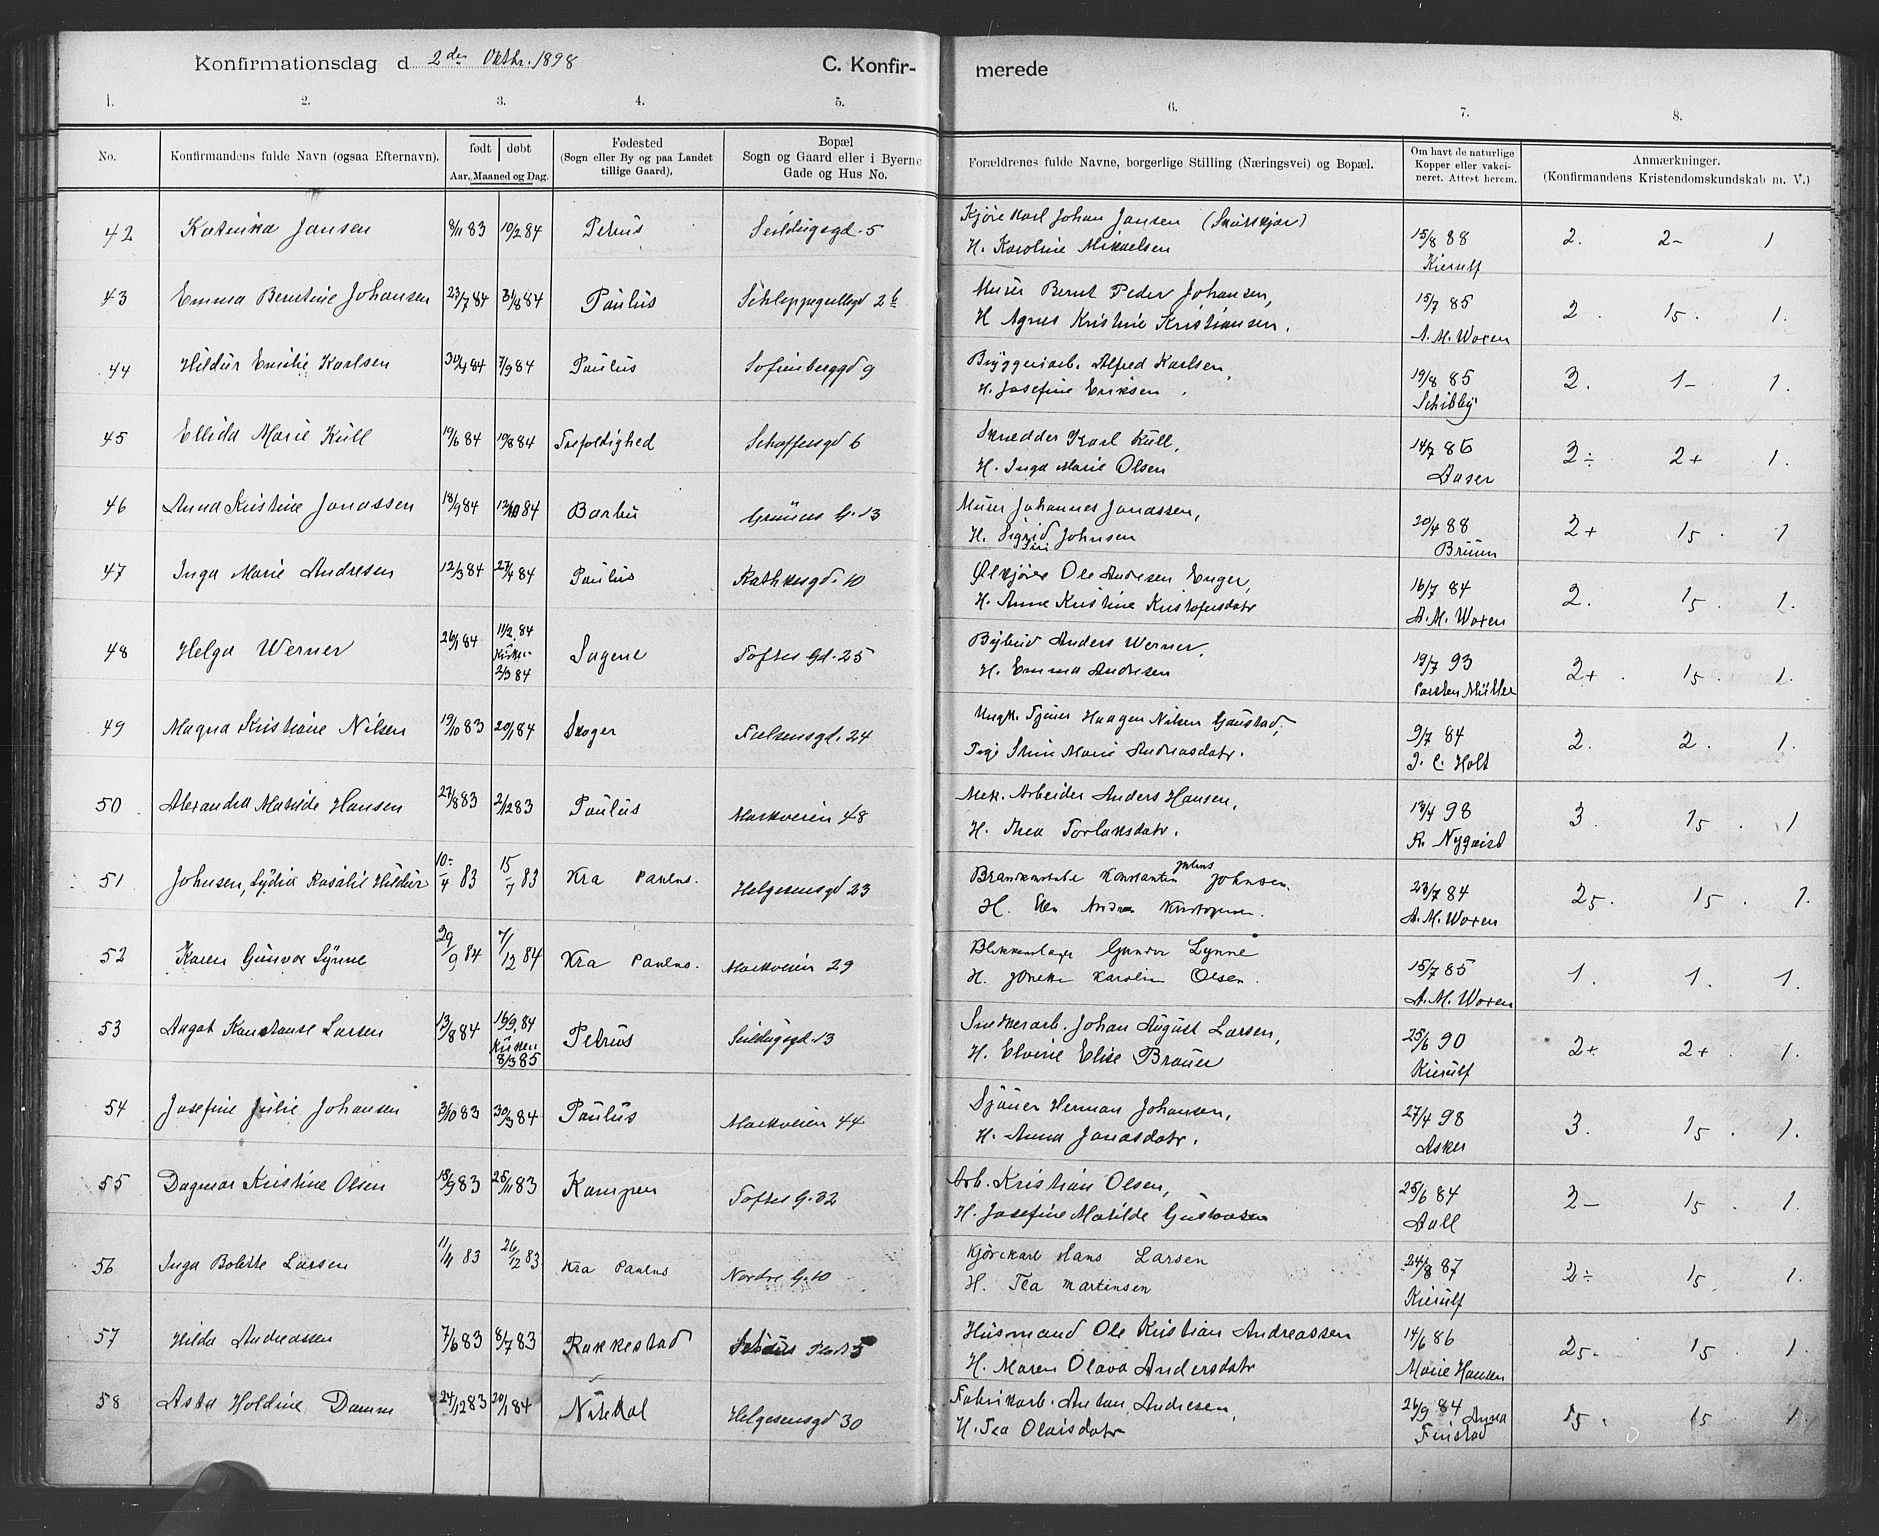 Konfirmationsdag d 2den Oktbr. 1898
C. Konfir- merede
1. 2. 3. 4. 5. 6. 7. 8.
No. Konfirmandens fulde Navn (ogsaa Efternavn). født døbt Aar, Maaned og Dag. Fødested (Sogn eller By og paa Landet tillige Gaard). Bopæl Sogn og Gaard eller i Byerne Gade og Hus No. Forældrenes fulde Navne, borgerlige Stilling (Næringsvei) og Bopæl. Om havt de naturlige Kopper eller vakcineret. Attest herom. Anmærkninger. (Konfirmandens Kristendomskundskab m. V.)
42 Katinka Jansen 8/11 83 10/2 84 Petrus Seildugsgd. 5 Kjørekarl Johan Jansen
H. Karoline Mikaelsen 15/8 88 Kierulf 2. 2- 1
43 Emma Berntine Johansen 23/7 84 31/8 84 Paulus Schleppegrellsgd 2b Murer Bernt Peder Johansen,
H Agnes Kristine Kristiansen. 15/7 85 A. M. Woxen 2. 15. 1.
44 Hildur Emilie Karlsen 30/4 84 7/9 84 Paulus Sofienberggd 9 Bryggeriarb. Alfred Karlsen,
H. Josefine Eriksen. 19/8 85 Schibby 2. 1- 1.
45 Ellida Marie Kull 19/6 84 10/8 84 Trefoldighed Schoffersgd 6 Skredder Karl Kull,
H. Inga Marie Olsen 14/7 86 Aaser 2÷ 2+ 1.
46 Anna Kristine Jonassen 18/9 84 12/10 84 Barbu Grüners G. 13 Murer Johannes Jonassen,
H. Sigrid Johnsen 20/4 88 Bruun 2+ 15. 1
47 Inga Marie Andresen 12/3 84 27/4 84 Paulus Rathkesgd. 10 Ølkjører Ole Andresen Enger,
H. Anne Kristine Kristofersdatr 16/7 84 A. M. Woxen 2. 15. 1.
48 Helga Werner 26/1 84 11/2 84 Kirken 2/3 84 Sagene Toftes Gd. 25 Bybud Anders Werner,
H. Emma Andresen 19/7 93 Carsten Müller 2+. 15. 1.
49 Magna Kristiane Nilsen 19/10 83 20/1 84 Skoger Falsensgd. 24 Ungk. Tjener Haagen Nilsen Gaustad,
Pige Stine Marie Andreasdatr. 9/7 84 J. C. Holt 2. 2. 1.
50 Alexandra Matilde Hansen 27/8 83 2/12 83 Paulus Markveien 48 Mek. Arbeider Anders Hansen,
H. Thea Torlaksdatr. 13/4 98 R. Nyqvist 3. 15. 1
51 Johnsen, Lydia Rosalie Hildur 10/4 83 15/7 83 Kra Paulus. Helgesensgd 23 Brandkonstabe Konstantin Julius Johnsen.
H. Elen Andrea Kristofersen. 23/7 84 A. M. Woxen 25. 15. 1.
52 Karen Gunvor Lynne 29/9 84 7/12 84 Kra Paulus. Markveien 29 Blikkenslager Gunder Lynne
H. Karoline Olsen. 15/7 85 A. M. Woxen 1. 1. 1.
53 Aagot Konstanse Larsen 13/8 84 15/9. 84 Kirken 8/3 85 Petrus Seildugsgd. 13 Snekerarb. Johan August Larsen,
H. Elvine Elise Brauer 25/6 90 Kierulf 2+ 2+. 1.
54 Josefine Julie Johansen 3/10 83 30/3 84 Paulus Markveien 44 Sjauer Herman Johansen,
H. Anna Jonasdatr. 27/4 98 Asker 3. 15. 1.
55 Dagmar Kristine Olsen 15/9 83 25/11 83 Kampen Toftes G. 32 Arb. Kristian Olsen,
H. Josefine Matilde Gustavsen 25/6 84 Aall 2- 15. 1.
56 Inga Bolette Larsen 11/11 83 26/12 83 Kra Paulus Nordre G. 10 Kjørekarl Hans Larsen
H. Tea Martinsen 24/8 87 Kierulf 2÷ 15 1.
57 Hilda Andreassen 7/6 83 8/7 83 Rakkestad Schous Plads 5 Husmand Ole Kristian Andreassen
H. Maren Olava Andersdatr 14/6 86 Marie Hansen 25. 15. 1.
58 Asta Holdine Damm 24/12 83 20/1 84 Nitedal Helgesensgd 30 Fabrikarb. Anton Andresen,
H. Tea Olaisdatr 26/9 84 Anna Finstad 15. 15. 1.